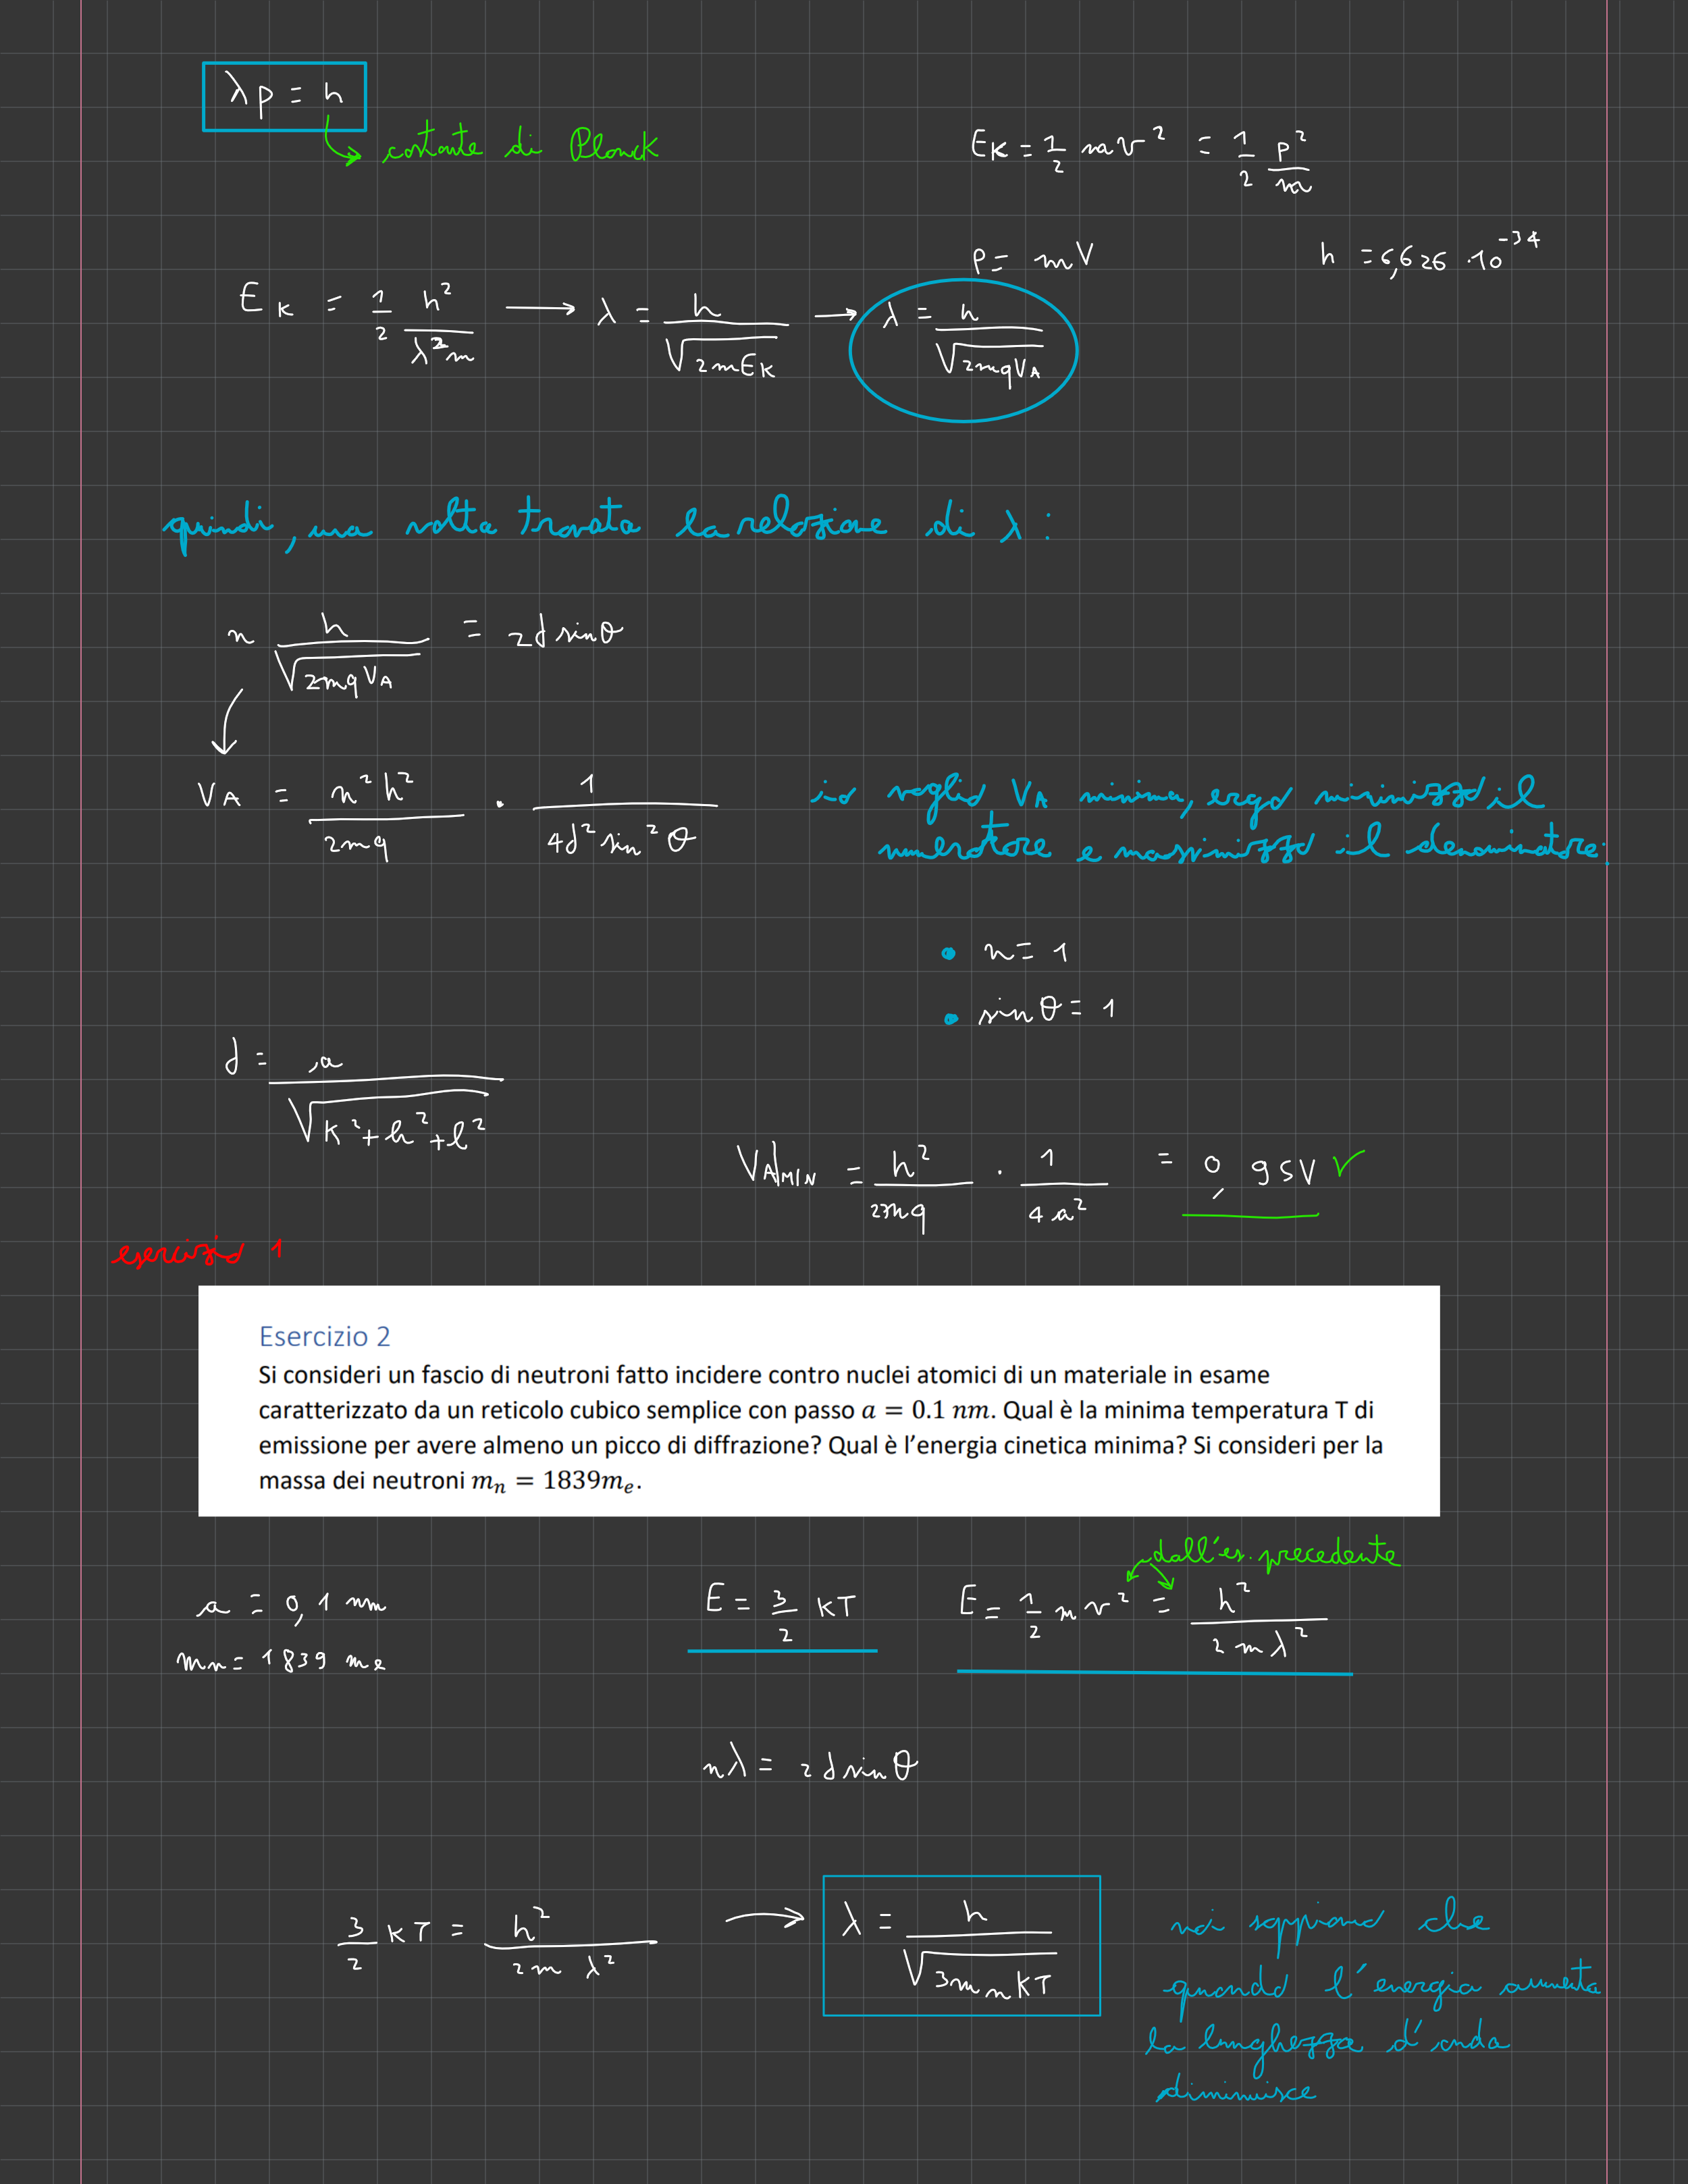 λp = h
costante di Planck
E_K = 1/2 m v² = 1/2 p²/m
p = mV
h = 6,626 · 10⁻³⁴
E_K = 1/2 h²/(λ²m) → λ = h/√(2mE_K) → λ = h/√(2mqV_A)
quindi, una volta trovata la relazione di λ :
n h/√(2mqV_A) = 2d sinθ
V_A = n²h²/(2mq) · 1/(4d² sin²θ)
io voglio V_A minima, ergo minimizzo il
numeratore e massimizzo il denominatore:
• n = 1
• sinθ = 1
d = a/√(k²+h²+l²)
V_A|MIN = h²/(2mq) · 1/(4a²) = 0,95V ✓
esercizio 1
Esercizio 2
Si consideri un fascio di neutroni fatto incidere contro nuclei atomici di un materiale in esame
caratterizzato da un reticolo cubico semplice con passo a = 0.1 nm. Qual è la minima temperatura T di
emissione per avere almeno un picco di diffrazione? Qual è l'energia cinetica minima? Si consideri per la
massa dei neutroni mₙ = 1839mₑ.
dall'es. precedente
a = 0,1 nm
mₙ = 1839 mₑ
E = 3/2 KT
E = 1/2 m v² = h²/(2mλ²)
nλ = 2d sinθ
3/2 KT = h²/(2mλ²) → λ = h/√(3mₙKT)
noi sappiamo che
quando l'energia aumenta
la lunghezza d'onda
diminuisce